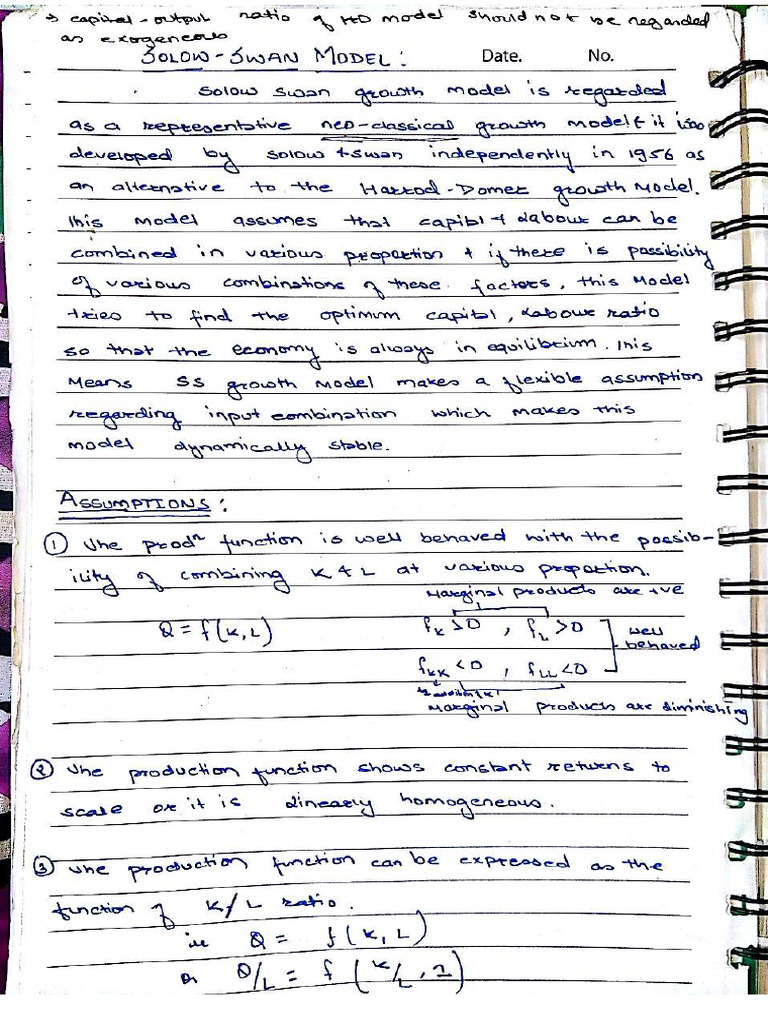 → capital-output ratio of HD model should not be regarded
as exogeneous
SOLOW-SWAN MODEL: Date. No.
Solow swan growth model is regarded
as a representative neo-classical growth model & it is
developed by solow & swan independently in 1956 as
an alternative to the Harrod-Domer growth Model.
This model assumes that capital & Labour can be
combined in various proportion & if there is possibility
of various combinations of these factors, this Model
tries to find the optimum capital, Labour ratio
so that the economy is always in equilibrium. This
Means SS growth Model makes a flexible assumption
regarding input combination which makes this
model dynamically stable.
ASSUMPTIONS:
① The prodⁿ function is well behaved with the possib-
ility of combining K & L at various proportion.
Marginal products are +ve
Q = f(K,L) fK > 0 , fL > 0 well
behaved
fKK < 0 , fLL < 0
Marginal products are diminishing
② The production function shows constant returns to
scale or it is Linearly homogeneous.
③ The production function can be expressed as the
function of K/L ratio.
ie Q = f(K, L)
or Q/L = f(K/L, 1)